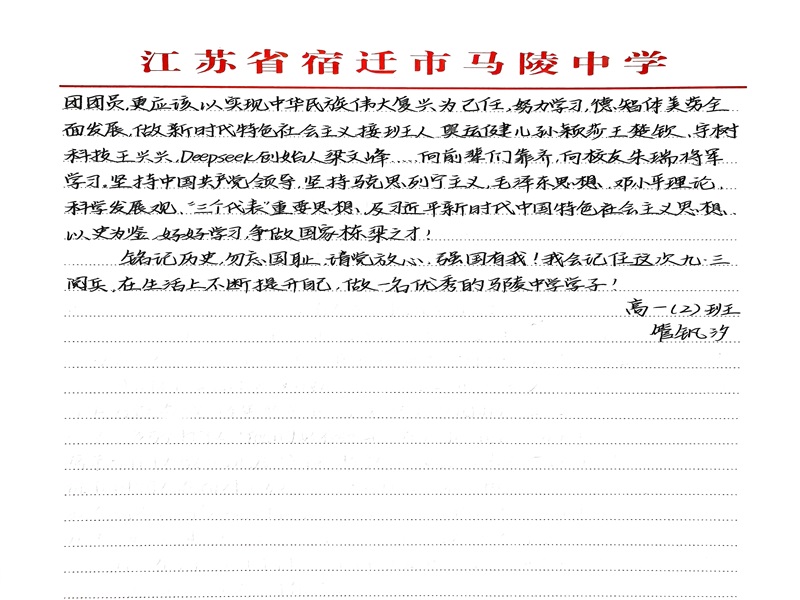 江苏省宿迁市马陵中学
团团员,更应该以实现中华民族伟大复兴为己任,努力学习,德智体美劳全
面发展,做新时代特色社会主义接班人 奥运健儿孙颖莎王楚钦、宇树
科技王兴兴,Deepseek创始人梁文峰……向前辈们靠齐,向校友朱瑞将军
学习。坚持中国共产党领导,坚持马克思列宁主义,毛泽东思想、邓小平理论,
科学发展观、“三个代表”重要思想、及习近平新时代中国特色社会主义思想、
以史为鉴,好好学习,争做国家栋梁之才!
铭记历史,勿忘国耻,请党放心,强国有我!我会记住这次九·三
阅兵,在生活上不断提升自己,做一名优秀的马陵中学学子!
高一(2)班
钒汐